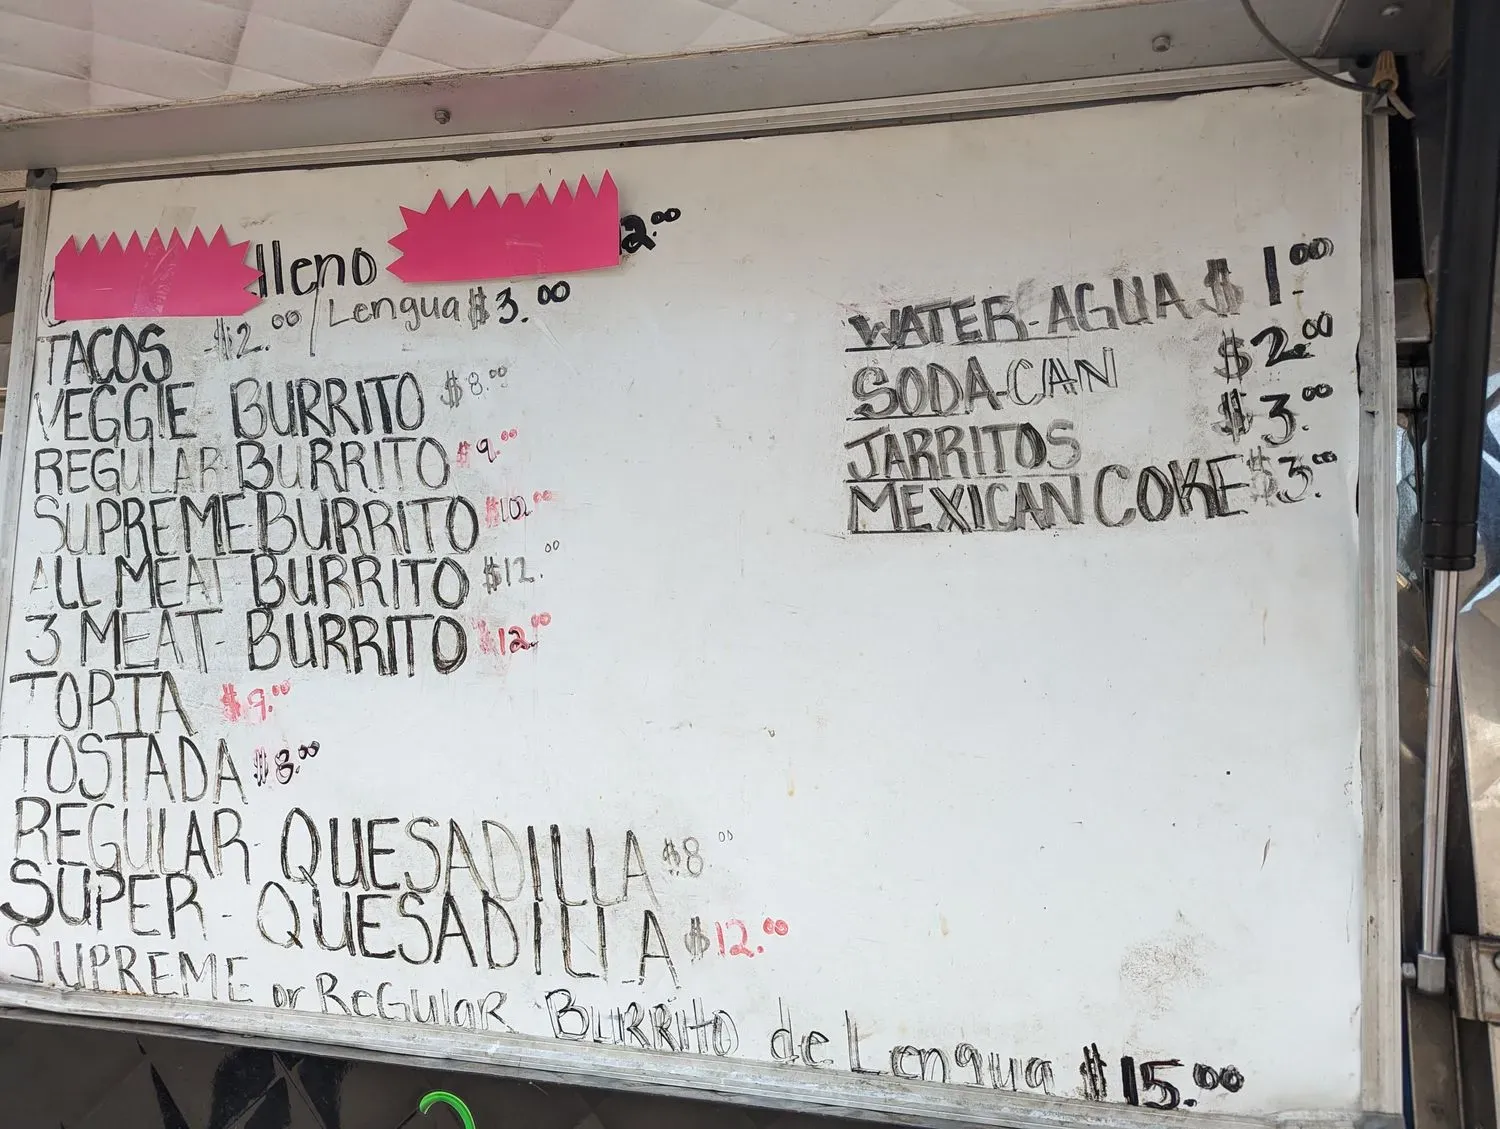 lleno 2.00
TACOS $2.00 / Lengua $3.00
VEGGIE BURRITO $8.00
REGULAR BURRITO $9.00
SUPREME BURRITO $10.00
ALL MEAT BURRITO $12.00
3 MEAT- BURRITO $12.00
TORTA $9.00
TOSTADA $8.00
REGULAR- QUESADILLA $8.00
SUPER - QUESADILLA $12.00
SUPREME or REGULAR BURRITO de Lengua $15.00
WATER-AGUA $1.00
SODA-CAN $2.00
JARRITOS $3.00
MEXICAN COKE $3.00